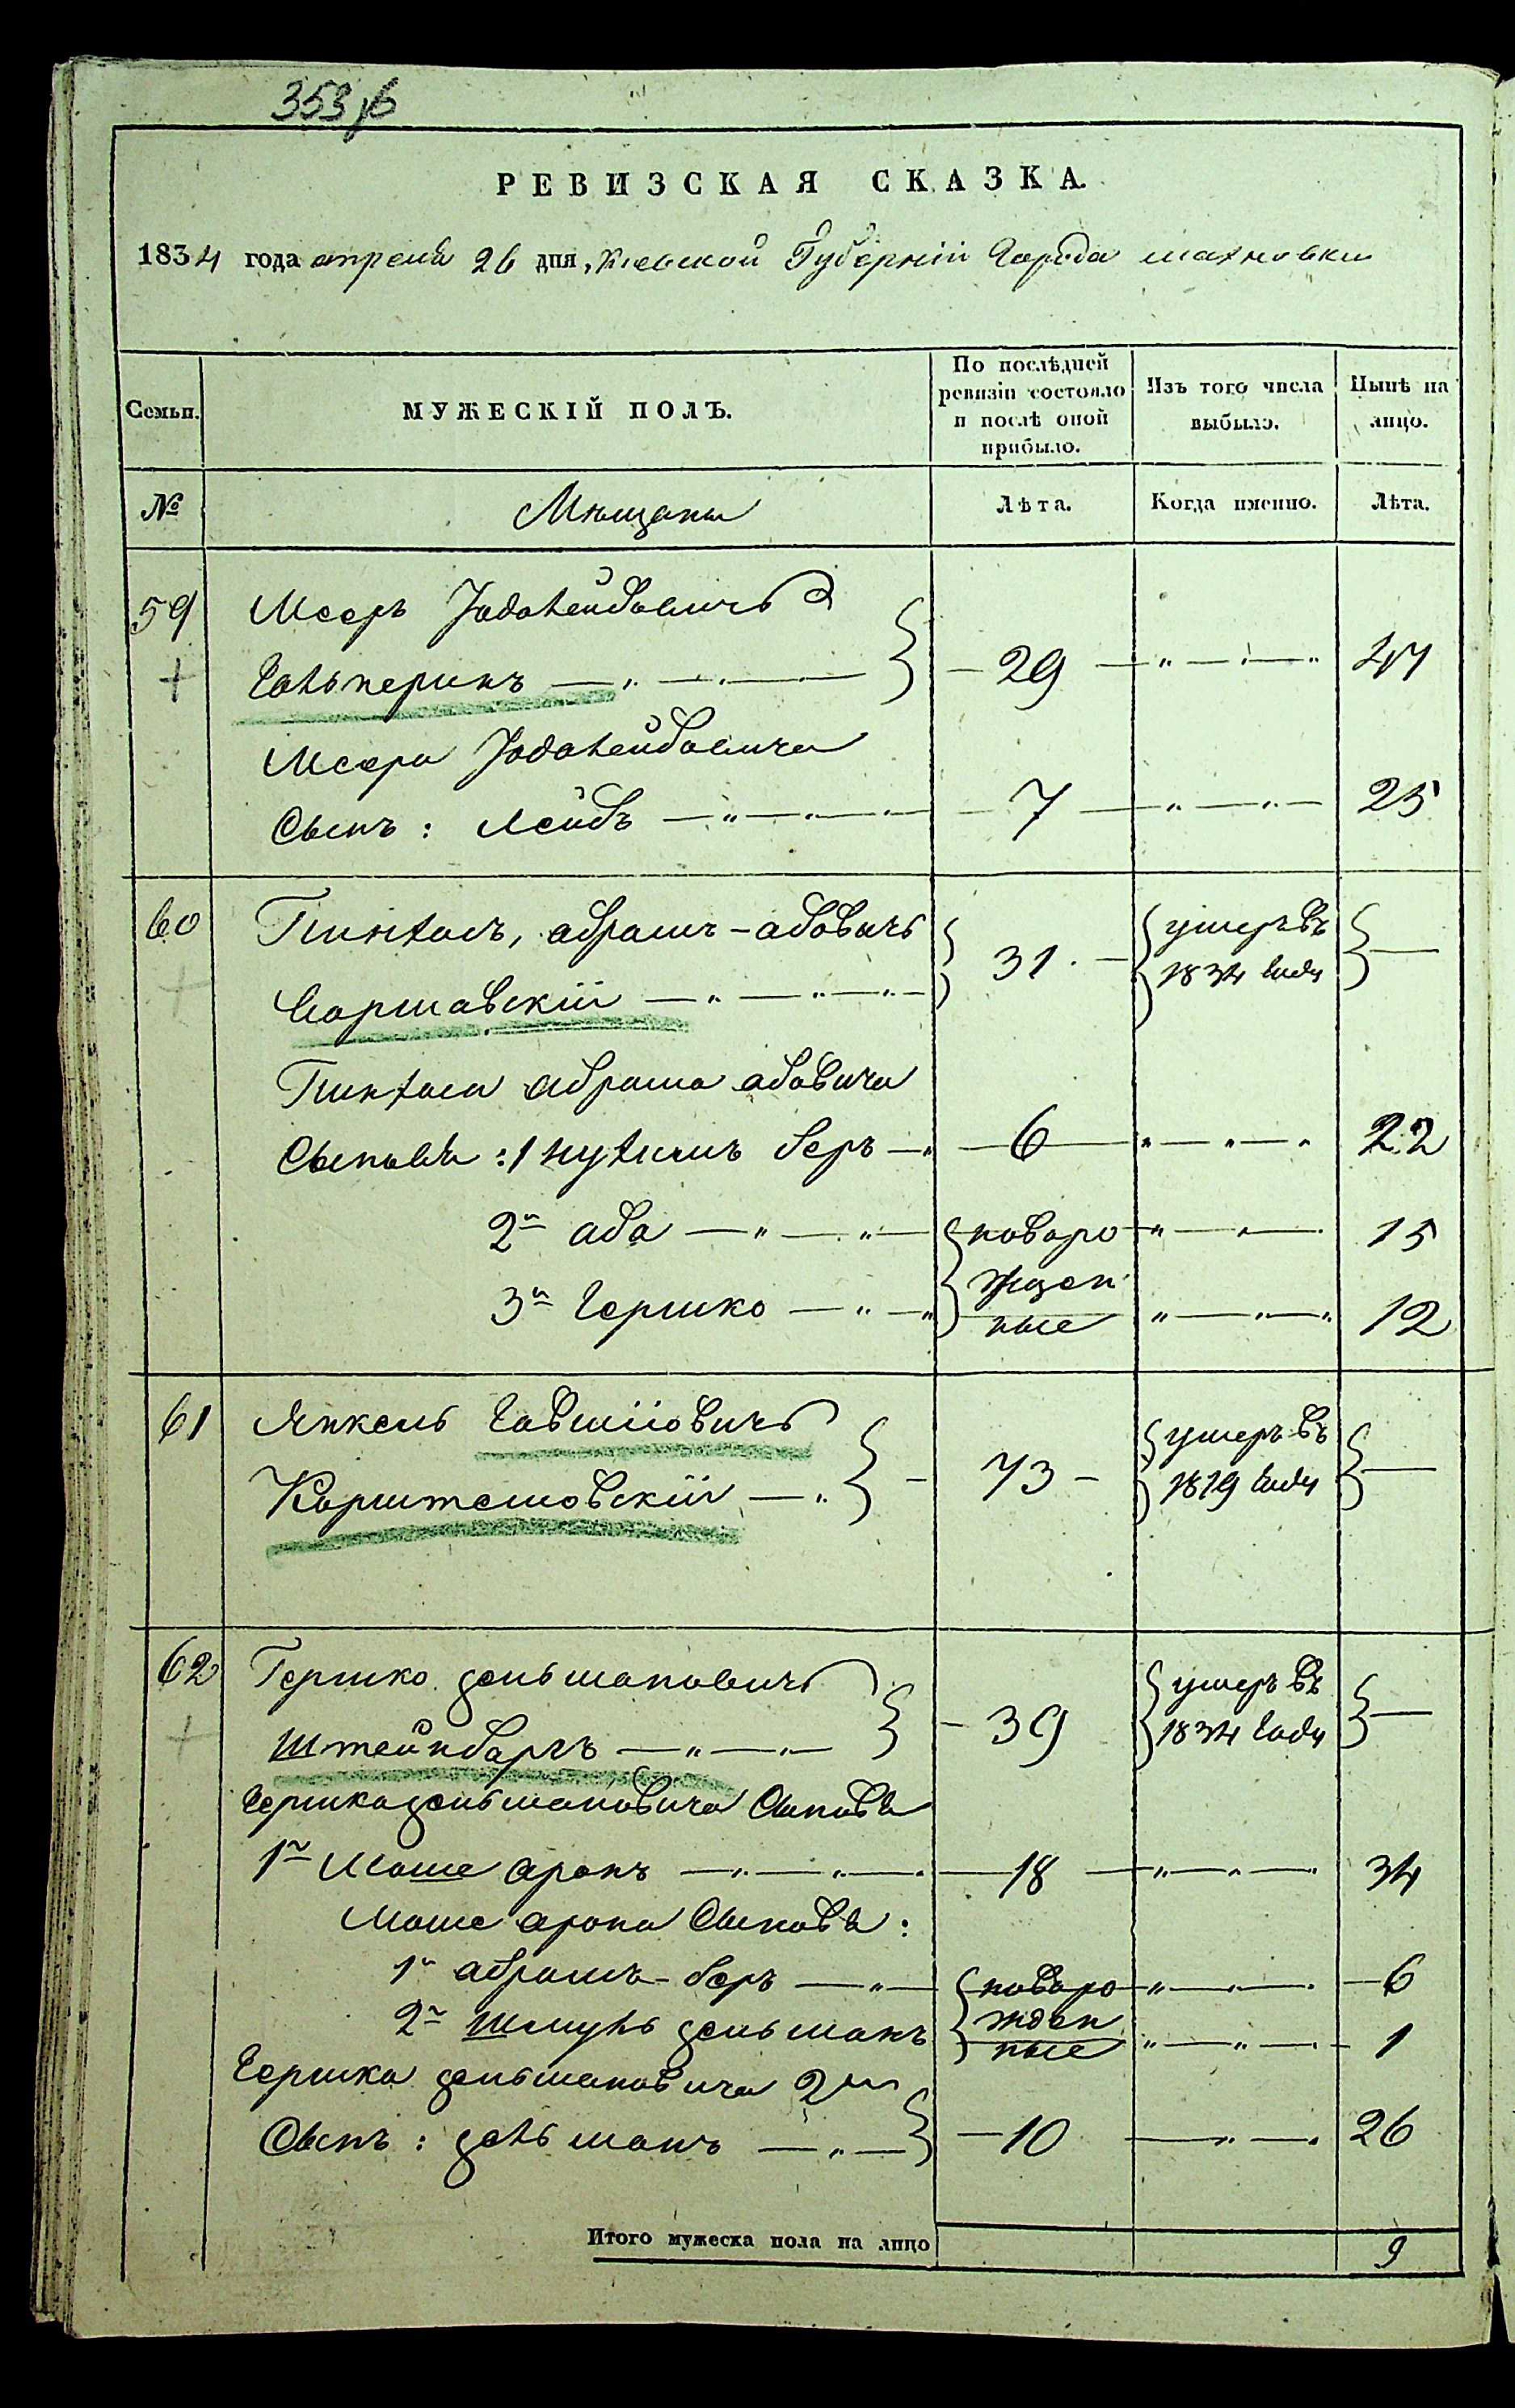 353 об
РЕВИЗСКАЯ СКАЗКА.
1834 года апреля 26 дня, Киевской Губерніи Города махновки
Семьи.
МУЖЕСКІЙ ПОЛЪ.
По послѣдней ревизіи состояло и послѣ оной прибыло.
Изъ того числа выбыло.
Нынѣ на лицо.
№ Мѣщаны Лѣта. Когда именно. Лѣта.
59 Меер Лейбовичъ
Гальперинъ 29 47
Меера Лейбовича
Сынъ: Лейбъ 7 25
60 Пинхасъ, абрамъ-абовичъ 31. умеръ въ
Варшавскій 1834 году
Пинхаса абрама абовича
Сыновья: 1 нухимъ беръ 6 22
2й аба новоро 15
жден
3й гершко ные 12
61 Янкель Говшіовичъ 73 умеръ въ
Коростешовскій 1819 году
62 Гершко зельмановичъ 39 умеръ въ
Штейнбаргъ 1834 году
гершка зельмановича Сыновья
1й Моше аронъ 18 34
Моше арона Сыновья:
1й абрамъ-беръ новоро 6
жден
2й Шмуль зельманъ ные 1
гершка зельмановича 2й
Сынъ: зельманъ 10 26
Итого мужеска пола на лицо 9